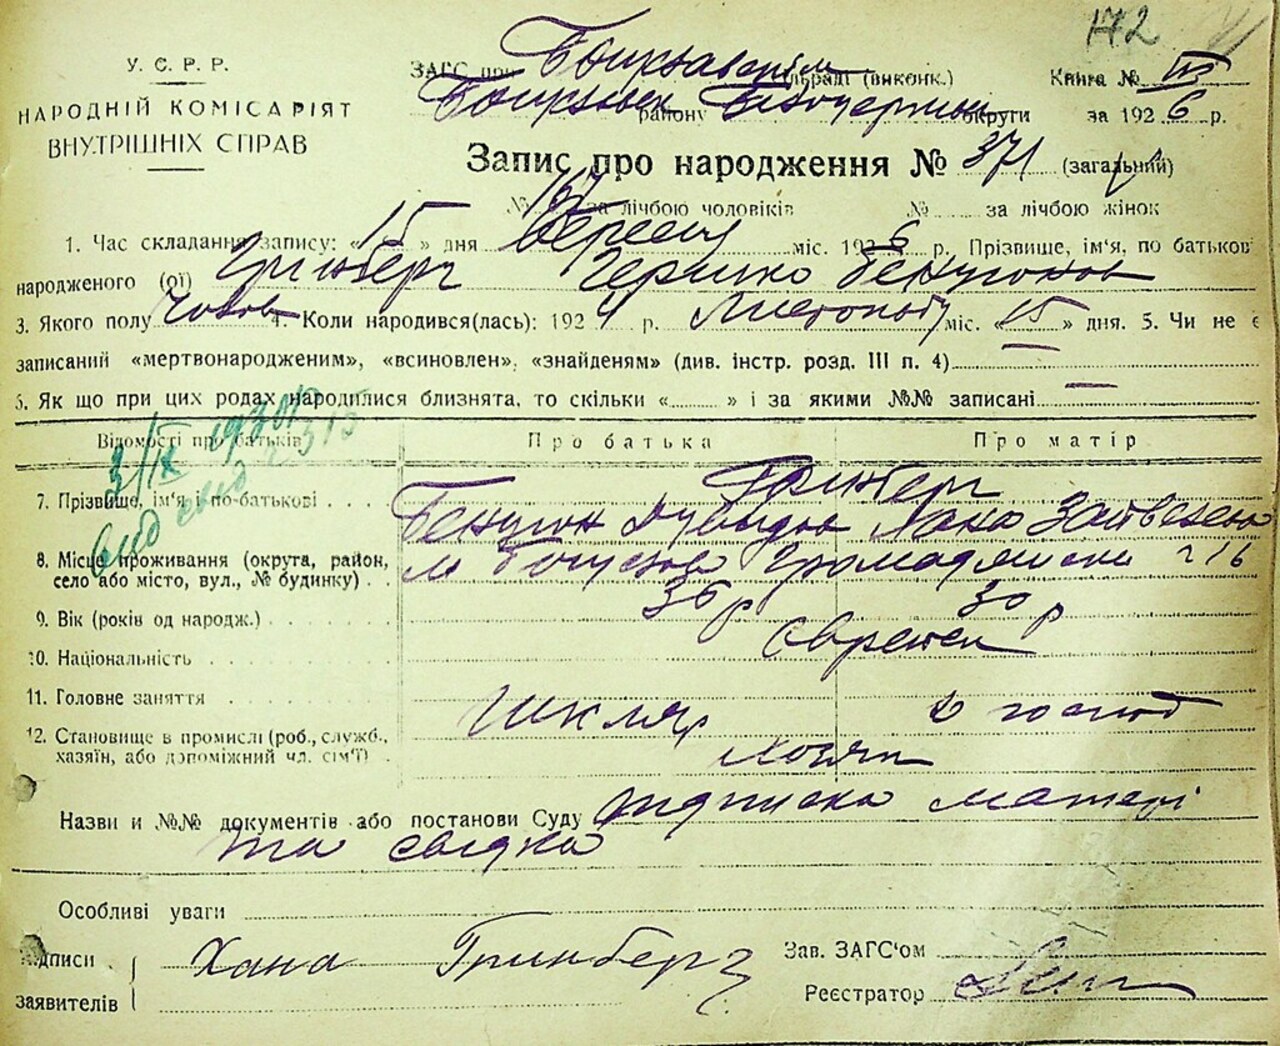 172
У. С. Р. Р.
НАРОДНІЙ КОМІСАРІЯТ
ВНУТРІШНІХ СПРАВ
ЗАГС при (виконк.) Книга № III
району округи за 1926 р.
Запис про народження № 371 (загальний)
№ за лічбою чоловіків № за лічбою жінок
1. Час складання запису: «15» дня Вересня міс. 1926 р. Прізвище, ім'я, по батькові
народженого (ої) Грінберг Гершко Бенціонов
3. Якого полу Чолов 4. Коли народився(лась): 1924 р. Листопаду міс. «15» дня. 5. Чи не є
записаний «мертвонародженим», «всиновлен», «знайденям» (див. інстр. розд. III п. 4) —
6. Як що при цих родах народилися близнята, то скільки « » і за якими №№ записані —
Відомості про батьків Про батька Про матір
3/IX 1930
7. Прізвище, ім'я і по-батькові Грінберг
Бенціон Хана
8. Місце проживання (округа, район,
село або місто, вул., № будинку) м Богуслав 16
9. Вік (років од народж.) 36 р 30 р
10. Національність Євреїв
11. Головне заняття Шкляр
12. Становище в промислі (роб., службов.,
хазяїн, або допоміжний чл. сім'ї)
Назви и №№ документів або постанови Суду підписка матері
та свідка
Особліві уваги
Підписи Хана Гринберг Зав. ЗАГС'ом
заявителів Реєстратор